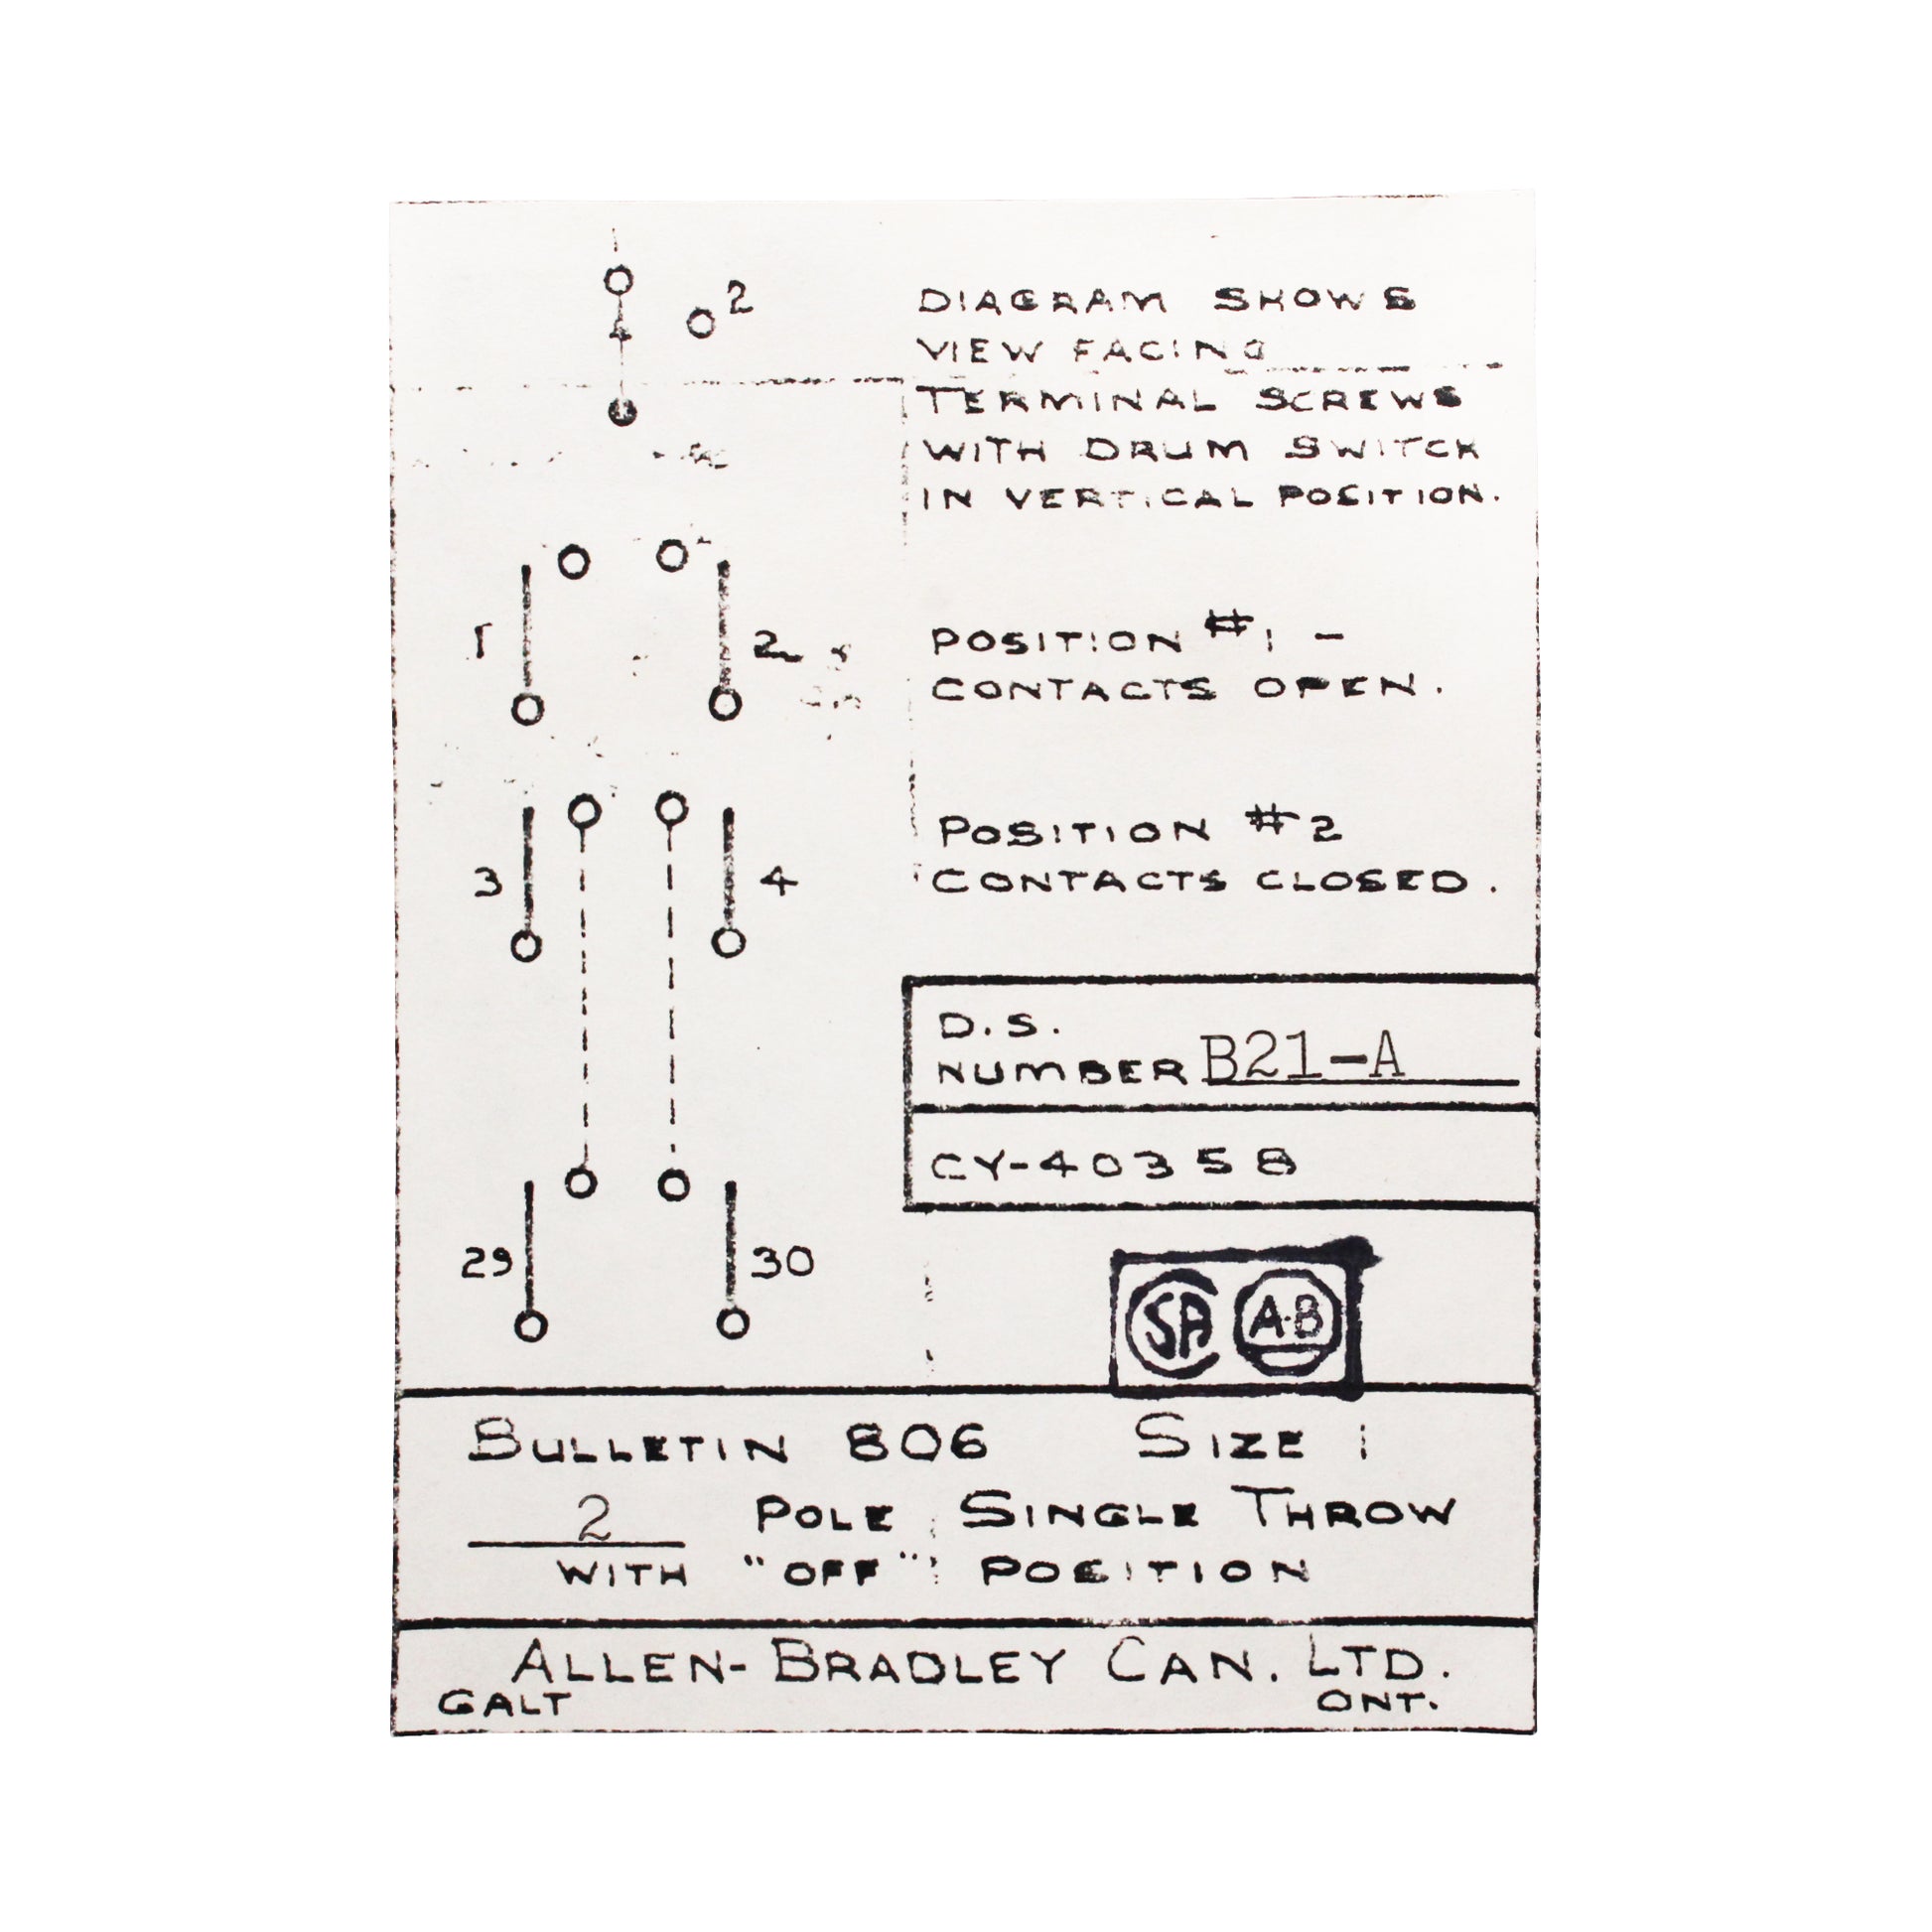 2
DIAGRAM SHOWS
VIEW FACING
TERMINAL SCREWS
WITH DRUM SWITCH
IN VERTICAL POSITION.
1
2
POSITION #1 -
CONTACTS OPEN.
3
4
POSITION #2
CONTACTS CLOSED.
D.S.
NUMBER B21-A
CY-40358
29
30
SA A-B
BULLETIN 806 SIZE 1
2 POLE SINGLE THROW
WITH "OFF" POSITION
ALLEN-BRADLEY CAN. LTD.
GALT ONT.